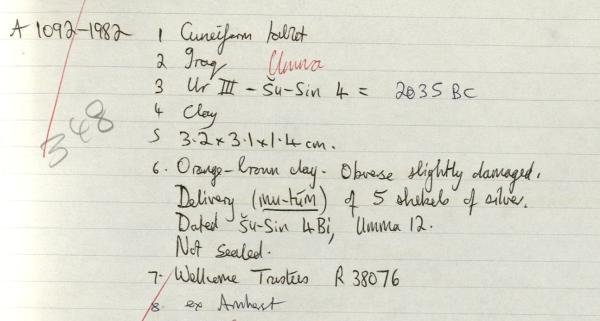 A 1092-1982 1 Cuneiform tablet
2 Iraq Umma
3 Ur III - Šu-Sin 4 = 2035 BC
4 Clay
348
5 3.2 x 3.1 x 1.4 cm.
6. Orange-brown clay. Obverse slightly damaged.
Delivery (mu-túm) of 5 shekels of silver.
Dated Šu-Sin 4Bi, Umma 12.
Not sealed.
7. Wellcome Trustees R 38076
8. ex Amherst